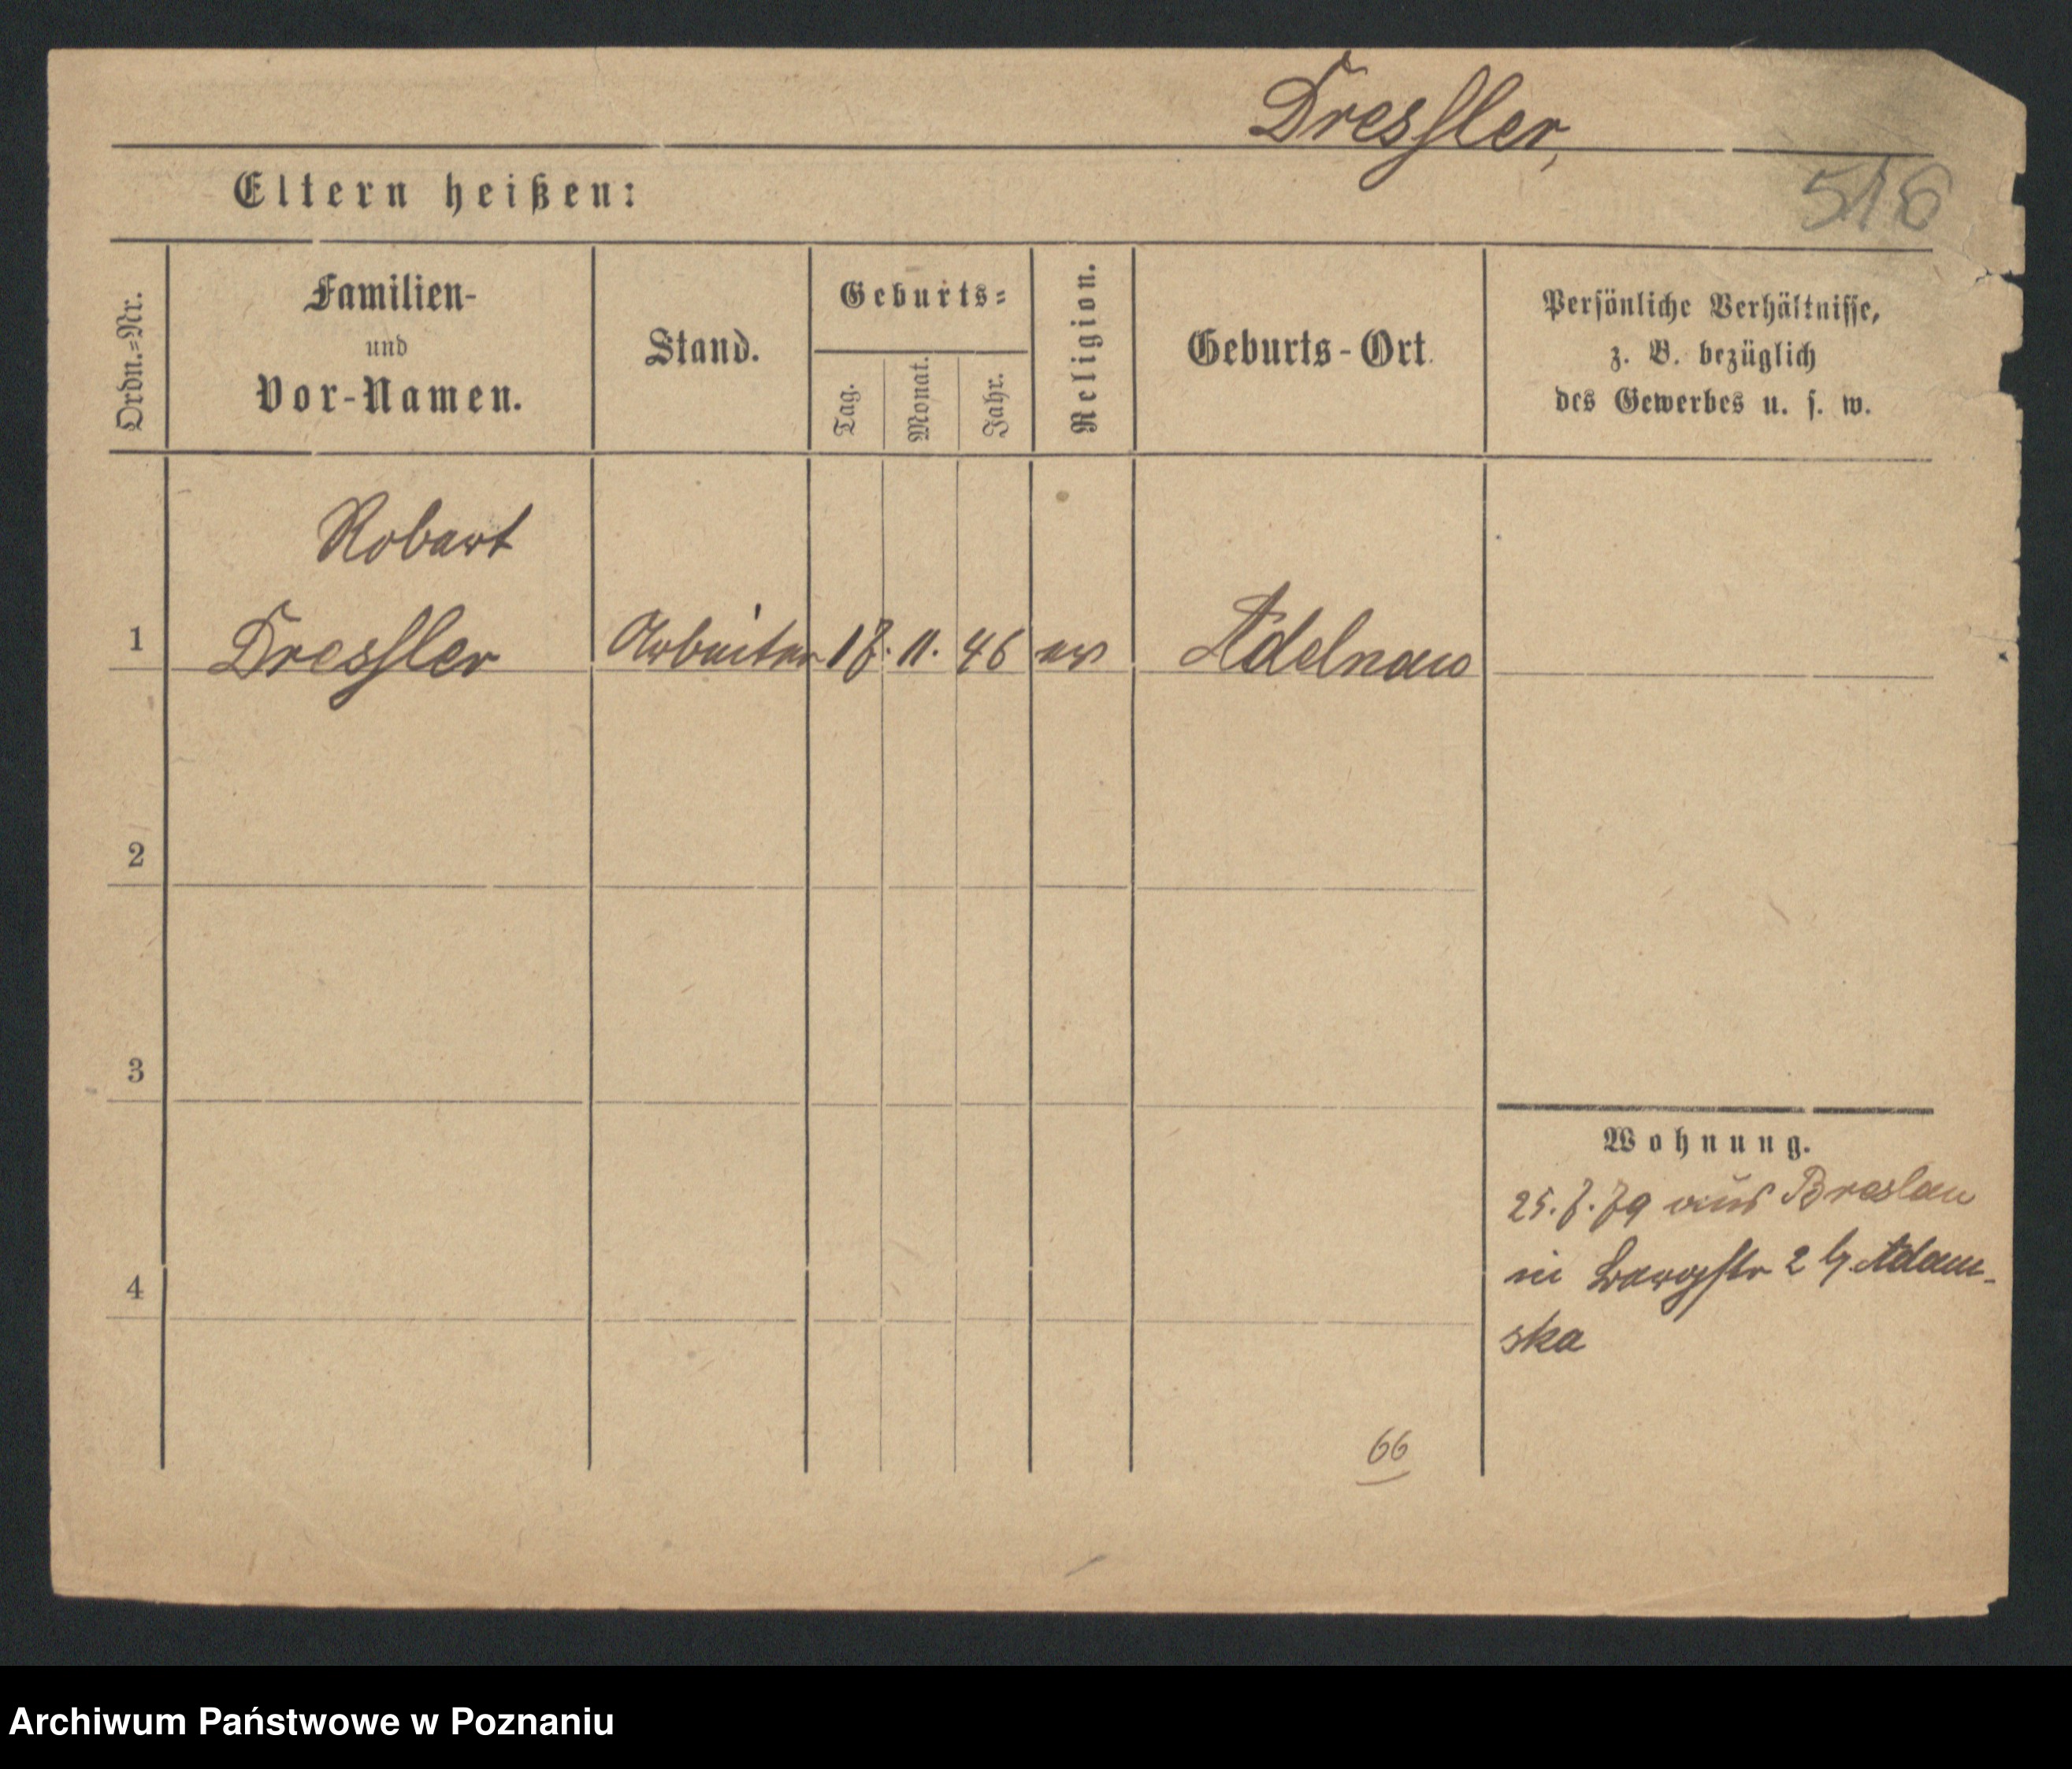 Dressler,
516
Eltern heißen:
Ordn.=Nr.
Familien-
und
Vor-Namen.
Stand.
Geburts=
Tag.
Monat.
Jahr.
Religion.
Geburts-Ort.
Persönliche Verhältnisse,
z. B. bezüglich
des Gewerbes u. s. w.
Robert
1 Dressler Arbeiter 17. 11. 46 ev Adelnau
2
3
4
Wohnung.
25. 7. 79 aus Breslau
in 2 b. Adam-
ska
66
Archiwum Państwowe w Poznaniu